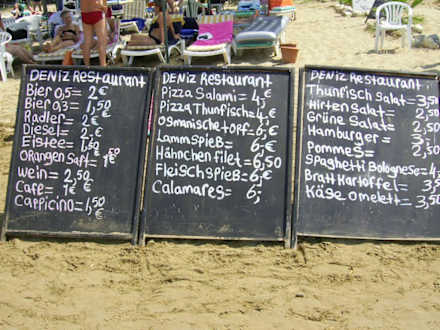 DENIZ Restaurant
Bier 0,5= 2€
Bier 0,3= 1,50 €
Radler= 2€
Diesel= 2€
Eistee= 1,50
Orangen Saft= 1 50 €
Wein= 2,50
Café= 1€ €
Cappicino= 1,50 €
DENIZ Restaurant
Pizza Salami= 4,- €
Pizza Thunfisch= 4,- €
Osmanische Topf= 6,- €
Lamm Spieß= 6,- €
Hähnchen filet= 6,50
Fleisch spieß= 6,- €
Calamares= 6,-
DENIZ Restaurant
Thunfisch Salat= 3,50
Hirten Salat= 2,50
Grüne Salat= 2,50
Hamburger=
Pommes= 2,50
Spaghetti Bolognese= 4,-
Bratt Kartoffel= 3,5
Käse omelett= 3,50